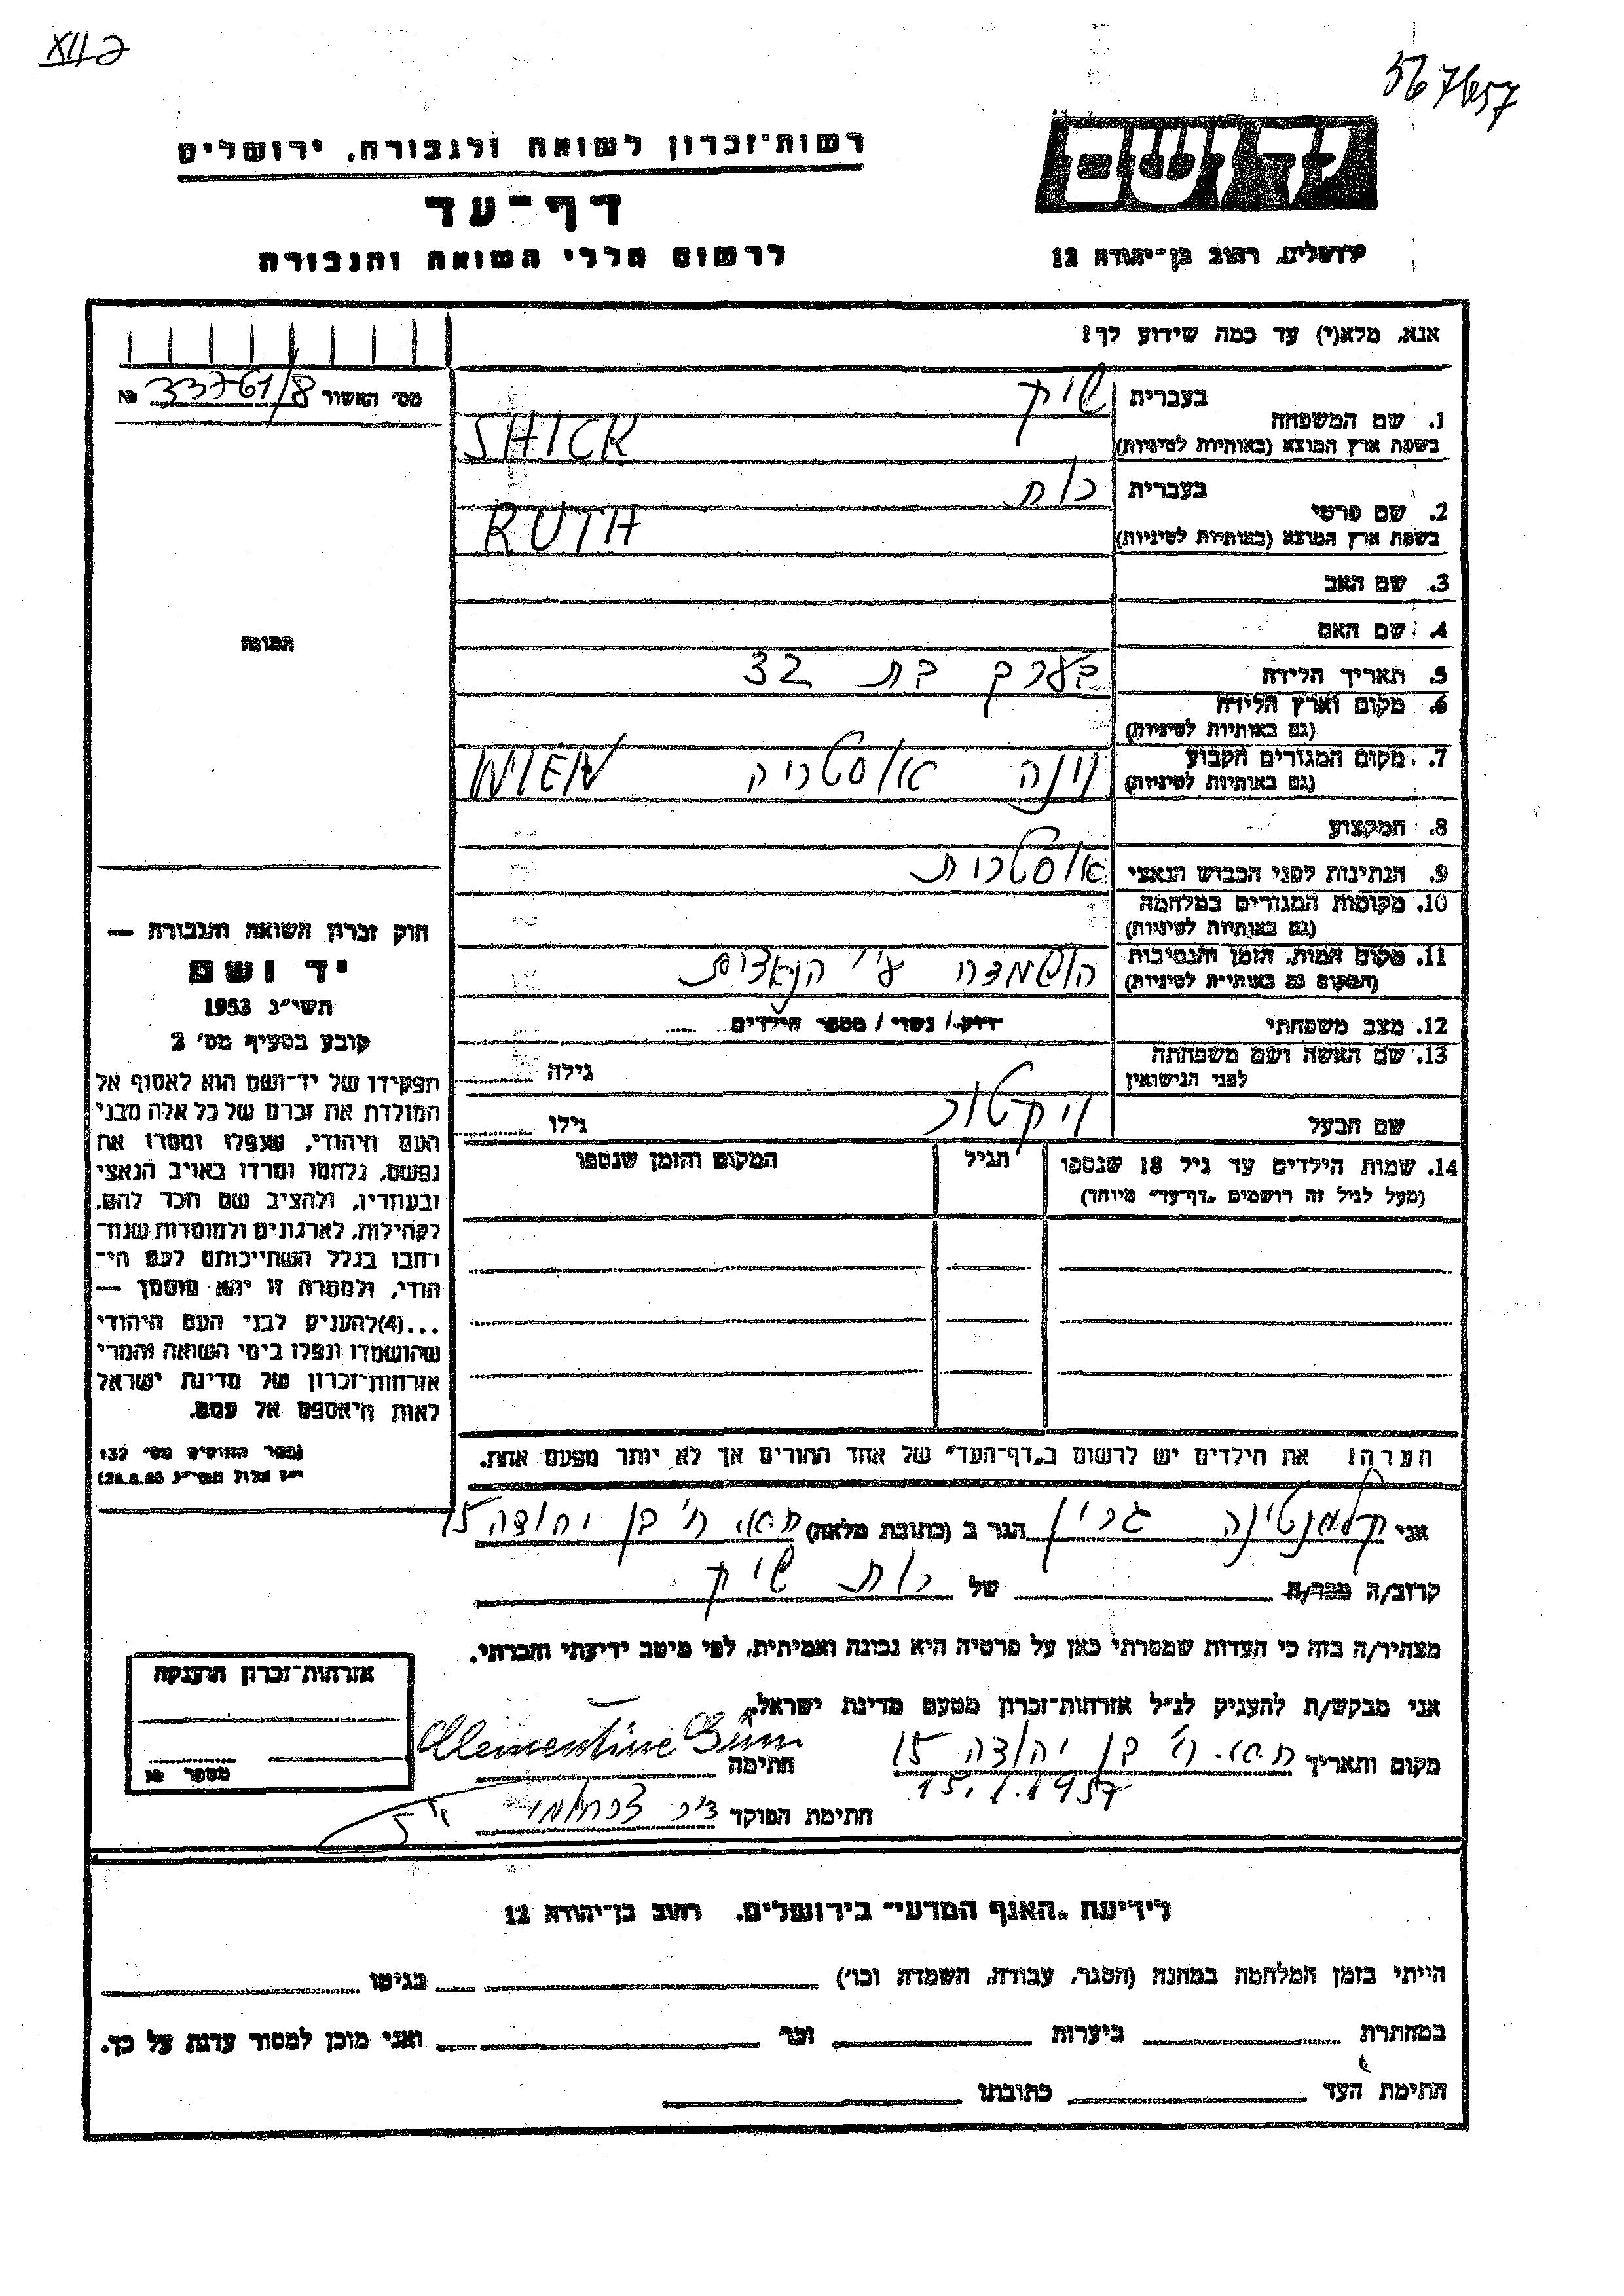 XII ב
567657
רשות־זכרון לשואה ולגבורה, ירושלים
דף־עד
לרשום חללי השואה והגבורה
יד ושם
ירושלים, רחוב בן־יהודה 12
אנא, מלא(י) עד כמה שידוע לך!
מס׳ האשור 33761/8 №
1. שם המשפחה
בעברית שיק
בשפת ארץ המוצא (באותיות לטיניות) SHICK
2. שם פרטי
בעברית רות
בשפת ארץ המוצא (באותיות לטיניות) RUTH
3. שם האב
4. שם האם
התמונה
5. תאריך הלידה בערך בת 32
6. מקום וארץ הלידה
(גם באותיות לטיניות)
7. מקום המגורים הקבוע וינה אוסטריה WIEN
(גם באותיות לטיניות)
8. המקצוע
9. הנתינות לפני הכבוש הנאצי אוסטרית
10. מקומות המגורים במלחמה
(גם באותיות לטיניות)
11. מקום המות, הזמן והנסיבות הושמדה ע״י הנאצים
(המקום גם באותיות לטיניות)
12. מצב משפחתי רווק/ נשוי/ מספר הילדים
13. שם האשה ושם משפחתה
לפני הנישואין גילה
שם הבעל ויקטור גילו
14. שמות הילדים עד גיל 18 שנספו הגיל המקום והזמן שנספו
(מעל לגיל זה רושמים „דף־עד״ מיוחד)
חוק זכרון השואה והגבורה —
יד ושם
תשי״ג 1953
קובע בסעיף מס׳ 2
תפקידו של יד־ושם הוא לאסוף אל
המולדת את זכרם של כל אלה מבני
העם היהודי, שנפלו ומסרו את
נפשם, נלחמו ומרדו באויב הנאצי
ובעוזריו, ולהציב שם וזכר להם,
לקהילות, לארגונים ולמוסדות שנח־
רבו בגלל השתייכותם לעם הי־
הודי, ולמטרה זו יהא מוסמך —
...(4)להעניק לבני העם היהודי
שהושמדו ונפלו בימי השואה והמרי
אזרחות־זכרון של מדינת ישראל
לאות היאספם אל עמם.
(ספר החוקים מס׳ 132
י״ז אלול תשי״ג 28.8.53)
הערה! את הילדים יש לרשום ב„דף־העד״ של אחד ההורים אך לא יותר מפעם אחת.
אני קלמנטינה גרין הגר ב (כתובת מלאה) ת״א, רח׳ בן יהודה 15
קרוב/ה מכר/ה של רות שיק
מצהיר/ה בזה כי העדות שמסרתי כאן על פרטיה היא נכונה ואמיתית, לפי מיטב ידיעתי והכרתי.
אני מבקש/ת להעניק לנ״ל אזרחות־זכרון מטעם מדינת ישראל.
מקום ותאריך ת״א. רח׳ בן יהודה 15 חתימה Clementine Grün
15.1.1957
חתימת הפוקד
אזרחות־זכרון הוענקה
מספר №
לידיעת „האגף המדעי״ בירושלים, רחוב בן־יהודה 12
הייתי בזמן המלחמה במחנה (הסגר, עבודה, השמדה וכו׳) בגיטו
במחתרת ביערות וכו׳ ואני מוכן למסור עדות על כך.
חתימת העד כתובתו